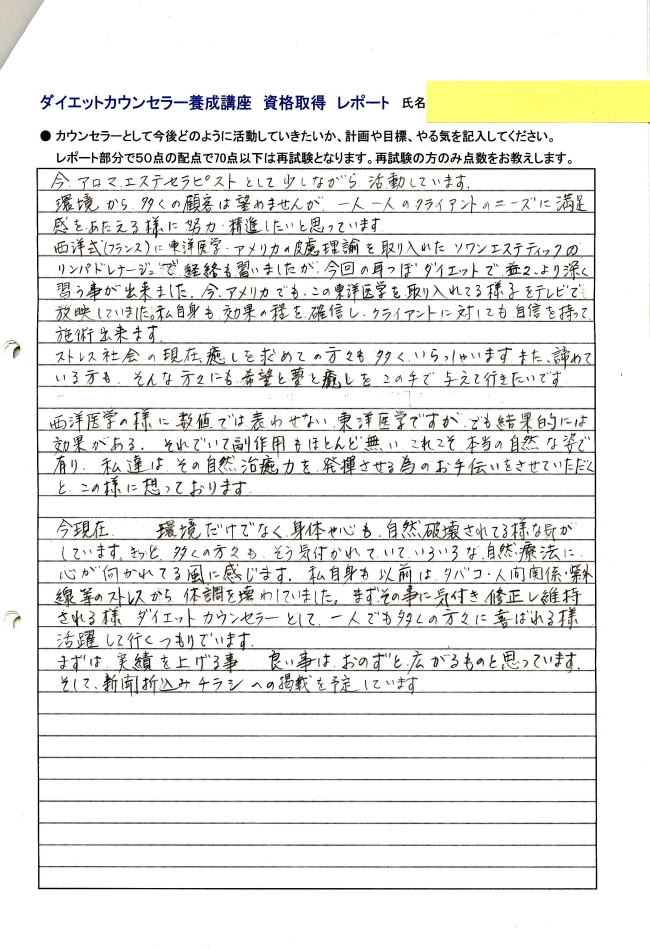 ダイエットカウンセラー養成講座 資格取得 レポート 氏名
● カウンセラーとして今後どのように活動していきたいか、計画や目標、やる気を記入してください。
レポート部分で50点の配点で70点以下は再試験となります。再試験の方のみ点数をお教えします。
今、アロマ、エステセラピストとして少しながら 活動しています。
環境から、多くの顧客は望めませんが、一人一人のクライアントのニーズに満足
感をあたえる様に努力・精進したいと思っています。
西洋式(フランス)に東洋医学・アメリカの皮膚理論を取り入れた ソワンエステティックの
リンパドレナージュで経絡も習いましたが、今回の耳つぼダイエットで益々、より深く
習う事が出来ました。今、アメリカでも、この東洋医学を取り入れてる様子をテレビで
放映していました。私自身も、効果の程を確信し、クライアントに対しても自信を持って、
施術出来ます。
ストレス社会の現在、癒しを求めての方々も多く、いらっしゃいますまた、諦めて
いる方も、そんな方々にも、希望と夢と癒しをこの手で与えて行きたいです
西洋医学の様に数値では表わせない、東洋医学ですが、でも結果的には
効果がある。それでいて副作用もほとんど無い、これこそ本当の自然な姿で
有り、私達は、その自然治癒力を、発揮させる為のお手伝いをさせていただく
と、この様に想っております。
今現在、 環境だけでなく、身体や心も、自然破壊されてる様な気が
しています。きっと、多くの方々も、そう気付かれていて、いろいろな自然療法に、
心が向かれてる風に感じます。私自身も以前は、タバコ・人間関係・紫外
線等のストレスから 体調を壊わしていました。まずその事に気付き、修正し維持
される様、ダイエットカウンセラーとして、一人でも多くの方々に喜ばれる様
活躍して行くつもりでいます。
まずは、実績を上げる事 良い事は、おのずと、広がるものと思っています。
そして、新聞折込みチラシへの掲載を予定しています